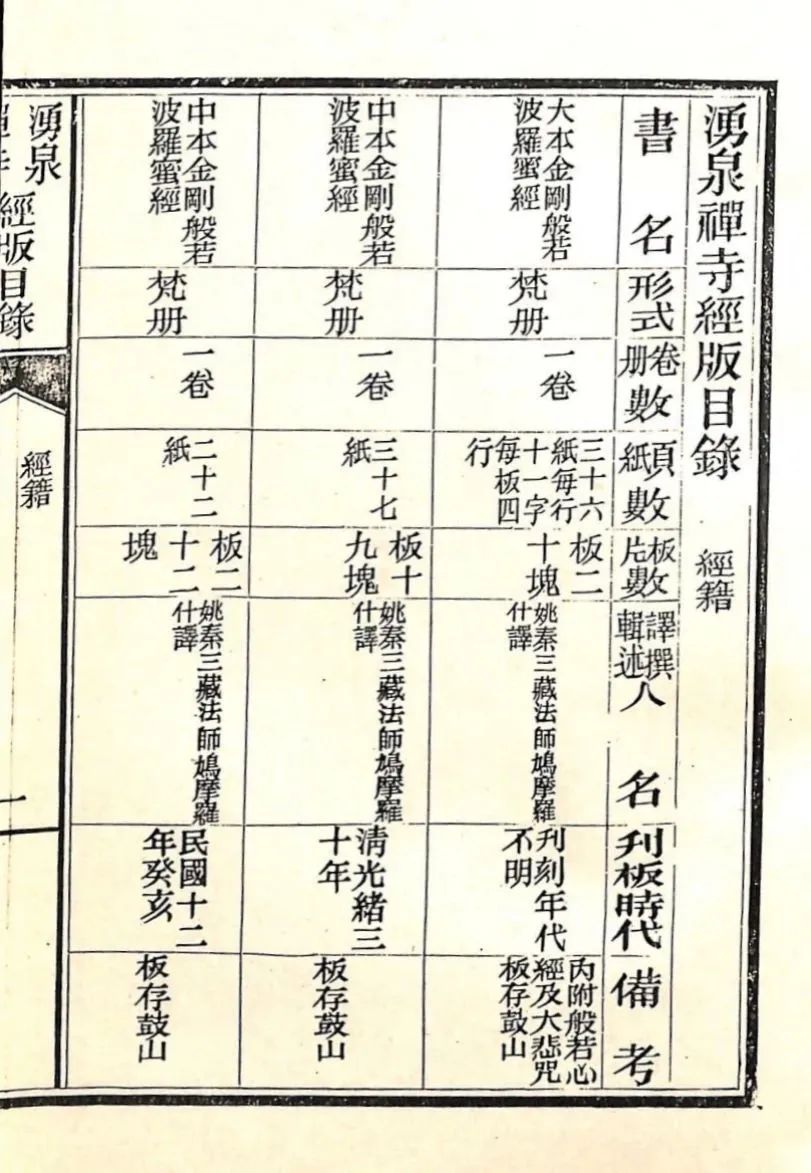 湧泉禪寺經版目錄 經籍
書名
形式
卷册數
頁紙數
板片數
譯撰輯述人名
刊板時代
備考
大本金剛般若
波羅蜜經
梵册
一卷
三十六
紙每行
十一字
每板四
行
板二
十塊
姚秦三藏法師鳩摩羅
什譯
刊刻年代
不明
內附般若心
經及大悲咒
板存鼓山
中本金剛般若
波羅蜜經
梵册
一卷
三十七
紙
板十
九塊
姚秦三藏法師鳩摩羅
什譯
清光緒三
十年
板存鼓山
中本金剛般若
波羅蜜經
梵册
一卷
二十二
紙
板二
十二
塊
姚秦三藏法師鳩摩羅
什譯
民國十二
年癸亥
板存鼓山
湧泉
禪寺經版目錄
經籍
一